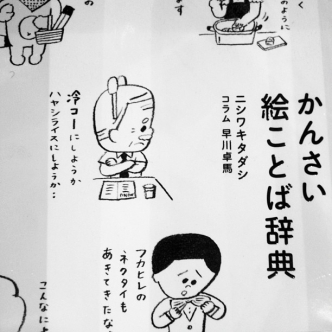 かんさい
絵ことば辞典
ニシワキタダシ
コラム 早川卓馬
のように
ます
冷コーにしようか
ハヤシライスにしようか‥
フカヒレの
ネクタイも
あきてきたな
こんなに